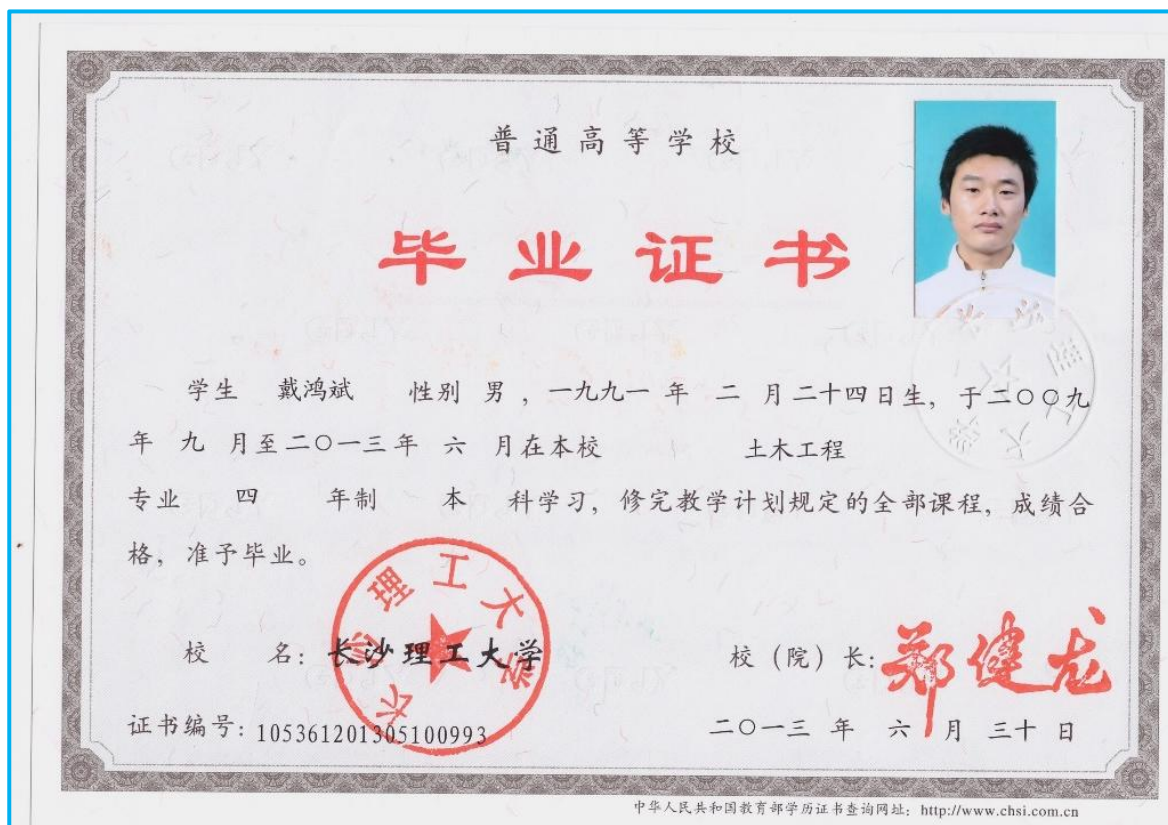 普通高等学校
毕业证书
学生 戴鸿斌 性别 男 ，一九九一 年 二 月二十四日生，于二〇〇九
年 九 月至二〇一三年 六 月在本校 土木工程
专业 四 年制 本 科学习，修完教学计划规定的全部课程，成绩合
格，准予毕业。
长沙理工大学
校 名：长沙理工大学 校（院）长：郑健龙
证书编号：105361201305100993 二〇一三 年 六 月 三十 日
中华人民共和国教育部学历证书查询网址：http://www.chsi.com.cn